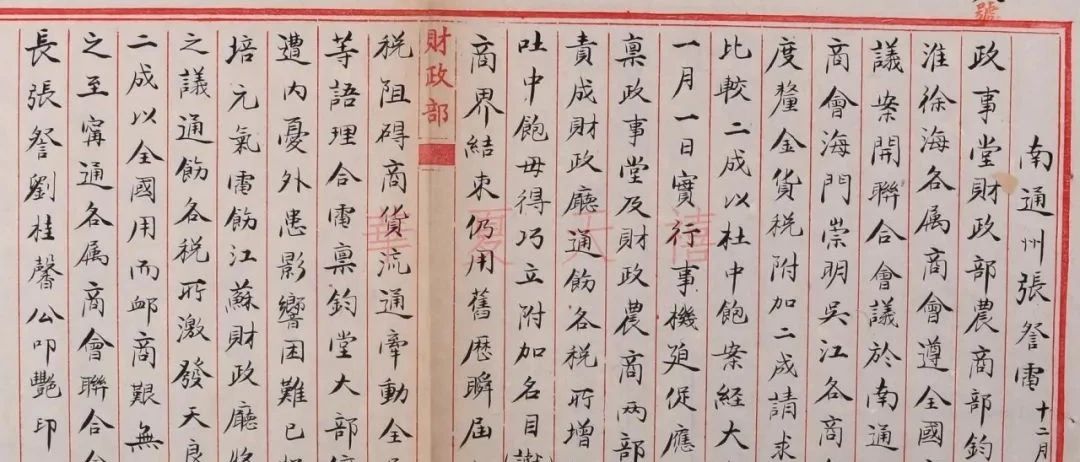 號
南通州張詧電 十二月
政事堂財政部農商部鈞
淮徐海各属商會遵全國
議案開聯合會議於南通
商會海門崇明吳江各商
度釐金貨税附加二成請求
比較二成以杜中飽案経大
一月一日實行事機廹促應
禀政事堂及財政農商兩部
責成財政廳通飭各税所增
吐中飽毋得巧立附加名目
商界結束仍用舊歷瞬届
財政部
税阻碍商貨流通牽動全
等語理合電禀鈞堂大部
遭内憂外患影響困難已
培元氣電飭江蘇財政廳
之議通飭各税所激發天良
二成以全國用而䘏商艱無
之至寗通各属商會聯合
長張詧劉桂馨公叩艷印
華夏天禧